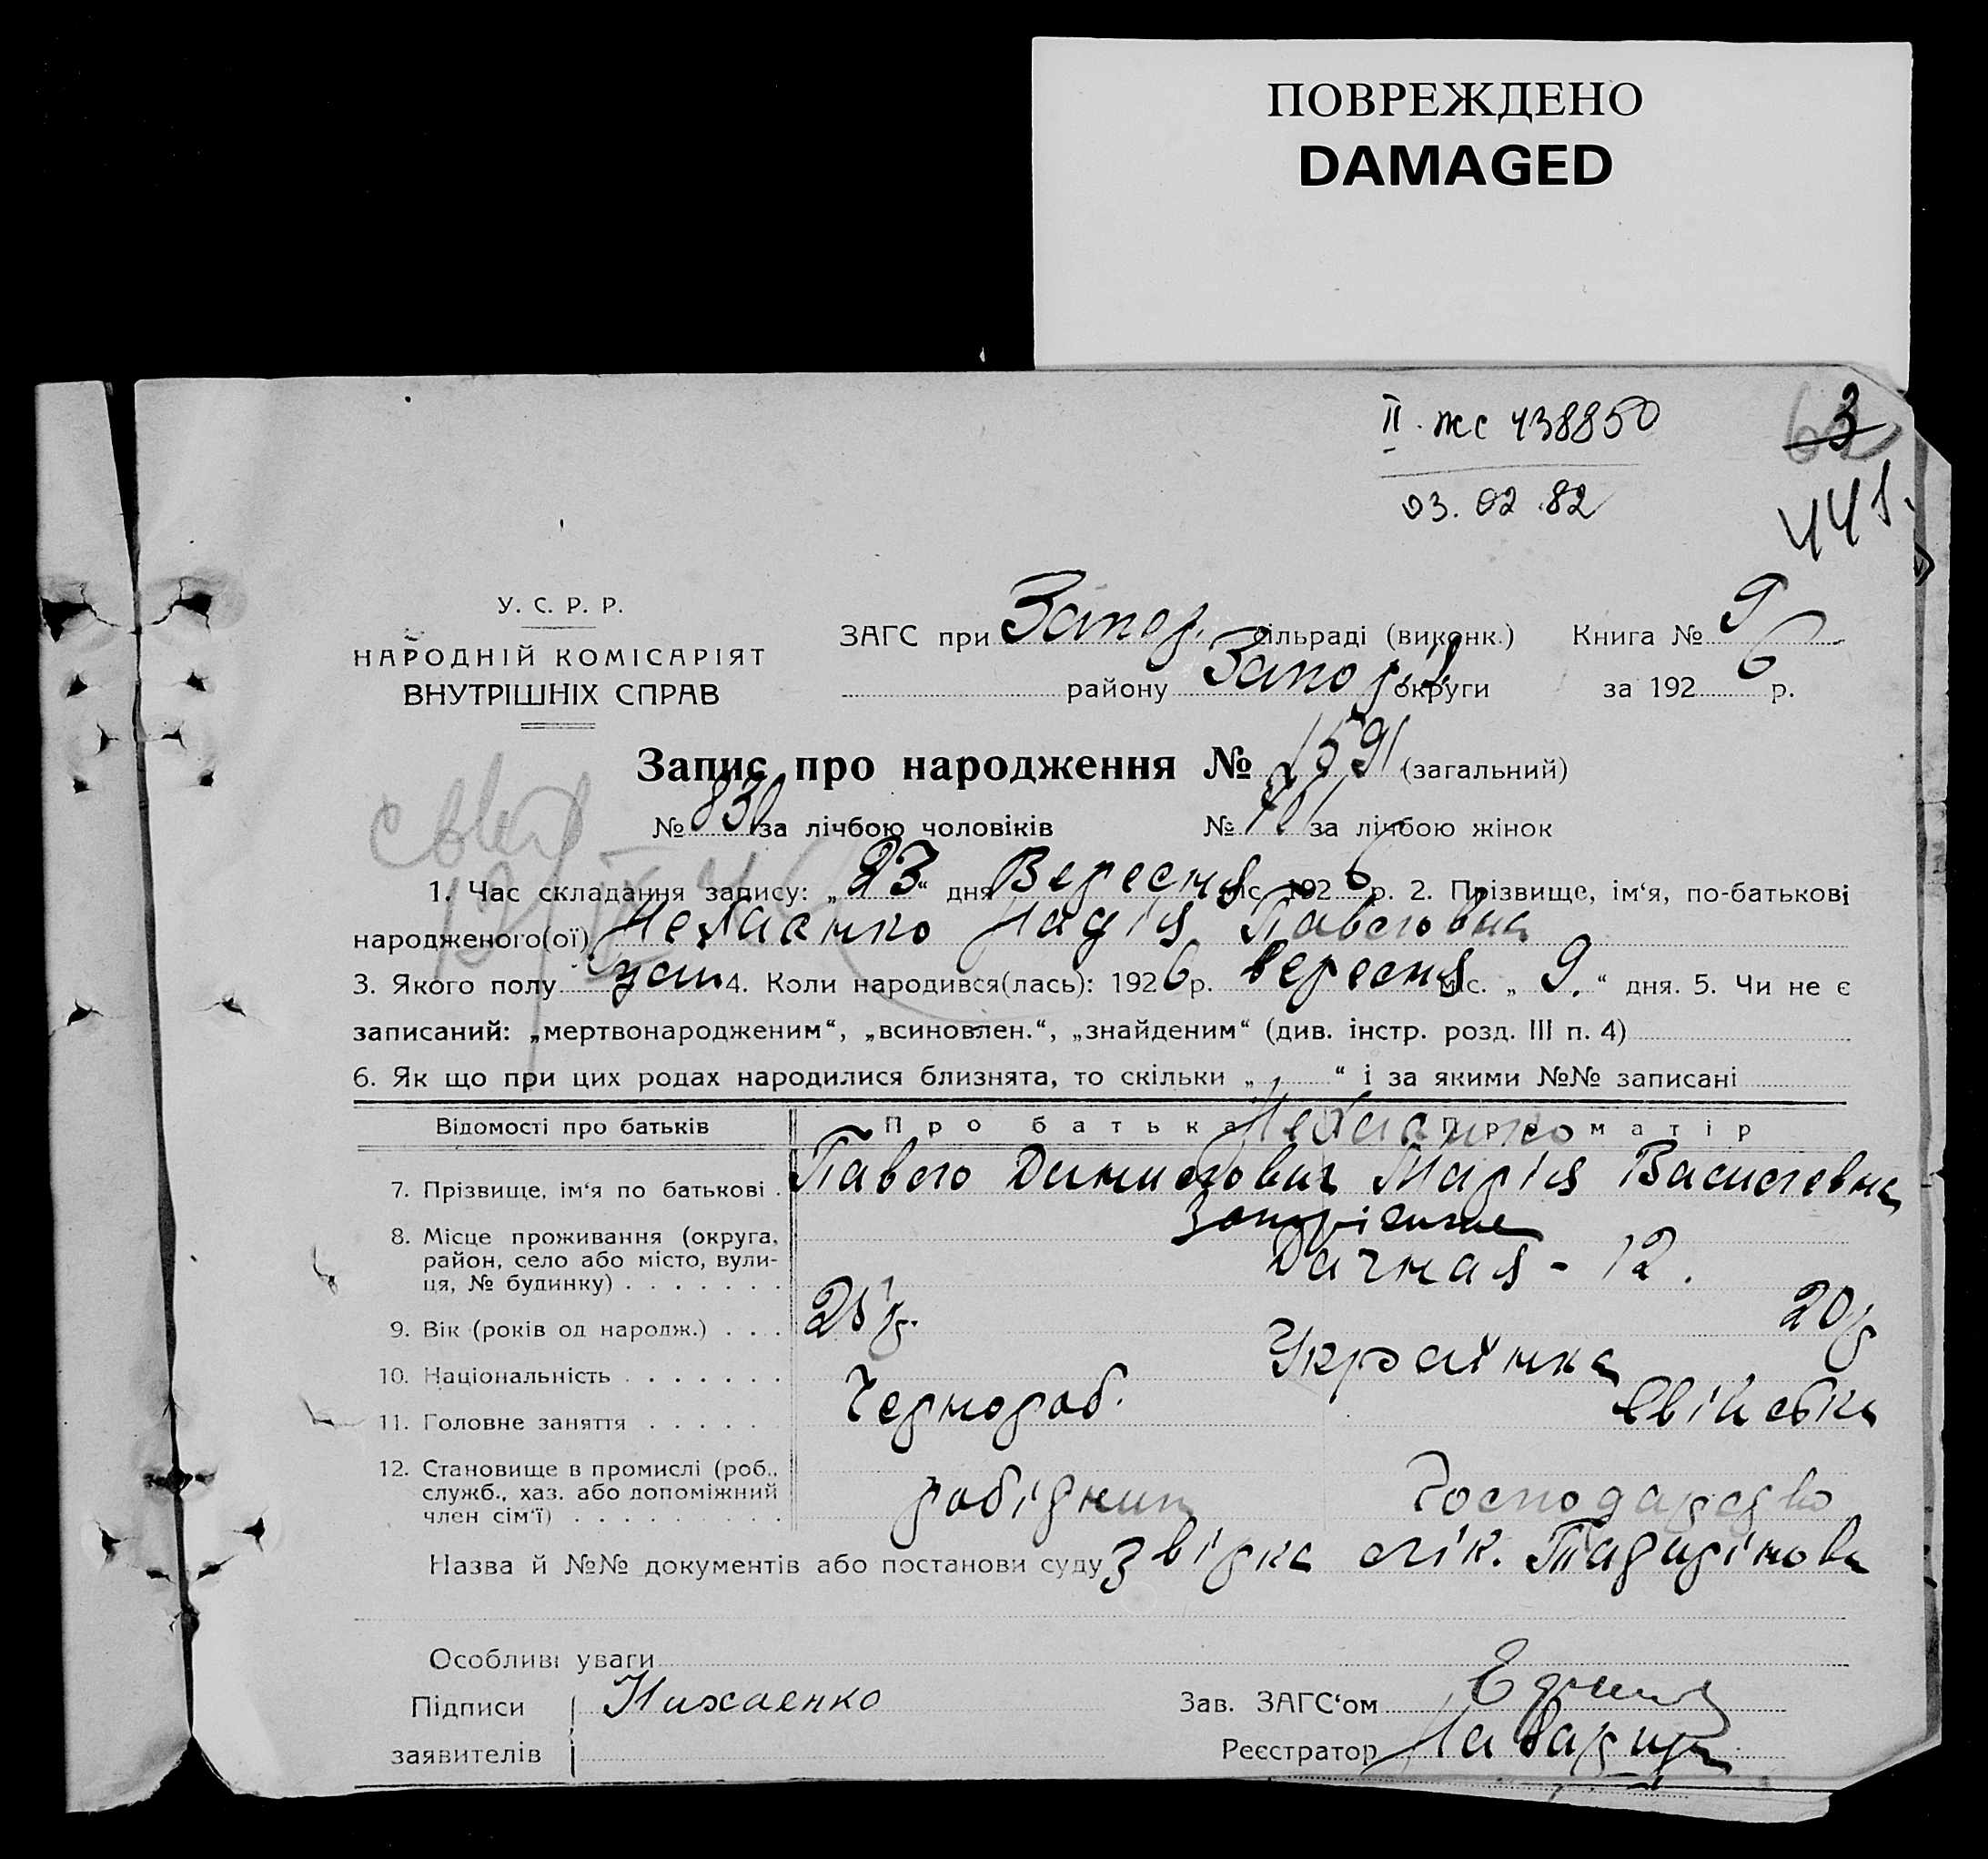 ПОВРЕЖДЕНО
DAMAGED
II. жс 438850
03.02.82
3
441
У. С. Р. Р.
НАРОДНІЙ КОМІСАРІЯТ
ВНУТРІШНІХ СПРАВ
ЗАГС при Запор. сільраді (виконк.) Книга № 9
району Запоріз округи за 192 6 р.
Запис про народження № 1591 (загальний)
№ 830 за лічбою чоловіків № 761 за лічбою жінок
1. Час складання запису: „23“ дня Вересня міс. 192 6 р. 2. Прізвище, ім‘я, по-батькові
народженого(ої) Нехаєнко Надія Павловна
3. Якого полу жін. 4. Коли народився(лась): 192 6 р. вересня міс. „ 9. “ дня. 5. Чи не є
записаний: „мертвонародженим“, „всиновлен.“, „знайденим“ (див. інстр. розд. III п. 4)
6. Як що при цих родах народилися близнята, то скільки „ “ і за якими №№ записані
Відомості про батьків Про батька Про матір
Нехаєнко
7. Прізвище, ім‘я по батькові . Павло Данилович Марія Василевна
8. Місце проживання (округа, район, село або місто, вулиця, № будинку) Запоріжже
Дачная - 12.
9. Вік (років од народж.) 25 р. 20 р
10. Національність Українка
11. Головне заняття Чернороб. Свійське
12. Становище в промислі (роб., служб., хаз. або допоміжний член сім‘ї) робідник Господарство
Назва й №№ документів або постанови суду Звірка лік.
Особливі уваги
Підписи Нихаенко Зав. ЗАГС‘ом
заявителів Реєстратор